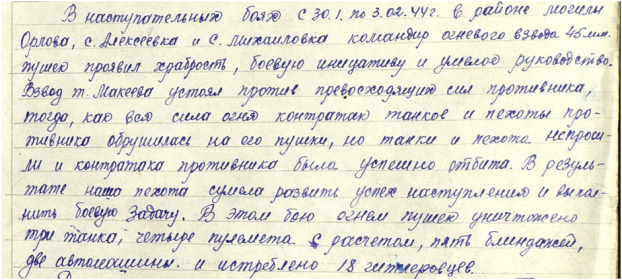 В наступательных боях с 30.1. по 3.02.44г. в районе могилы
Орлова, с. Алексеевка и с. Михайловка командир огневого взвода 45 мм.
пушек проявил храбрость, боевую инициативу и умелое руководство.
Взвод т. Макеева устоял против превосходящих сил противника,
тогда, как вся сила огня контратак танков и пехоты про-
тивника обрушилась на его пушки, но танки и пехота непрош-
ли и контратака противника была успешно отбита. В резуль-
тате наша пехота сумела развить успех наступления и выпол-
нить боевую задачу. В этом бою огнем пушек уничтожено
три танка, четыре пулемета с расчетом, пять блиндажей,
две автомашины. и истреблено 18 гитлеровцев.